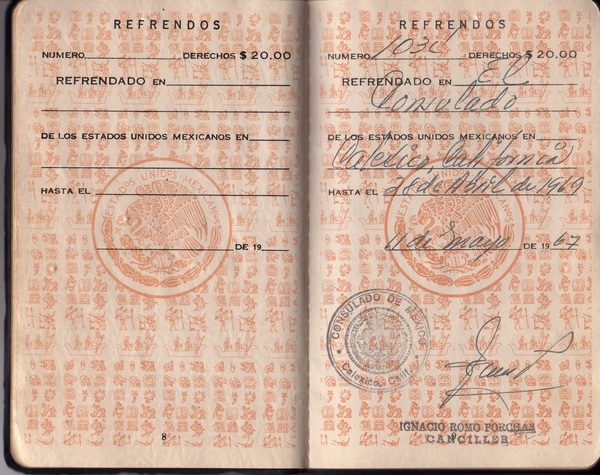 REFRENDOS
NUMERO DERECHOS $ 20.00
REFRENDADO EN
DE LOS ESTADOS UNIDOS MEXICANOS EN
HASTA EL
DE 19
ESTADOS UNIDOS MEXICANOS
8
REFRENDOS
NUMERO DERECHOS $ 20.00
REFRENDADO EN El
Consulado
DE LOS ESTADOS UNIDOS MEXICANOS EN
Calexico, California
HASTA EL 28 de Abril de 1969
11 de mayo DE 1967
ESTADOS UNIDOS MEXICANOS
CONSULADO DE MEXICO
Calexico, Calif.
IGNACIO ROMO PORCHAS
CANCILLER